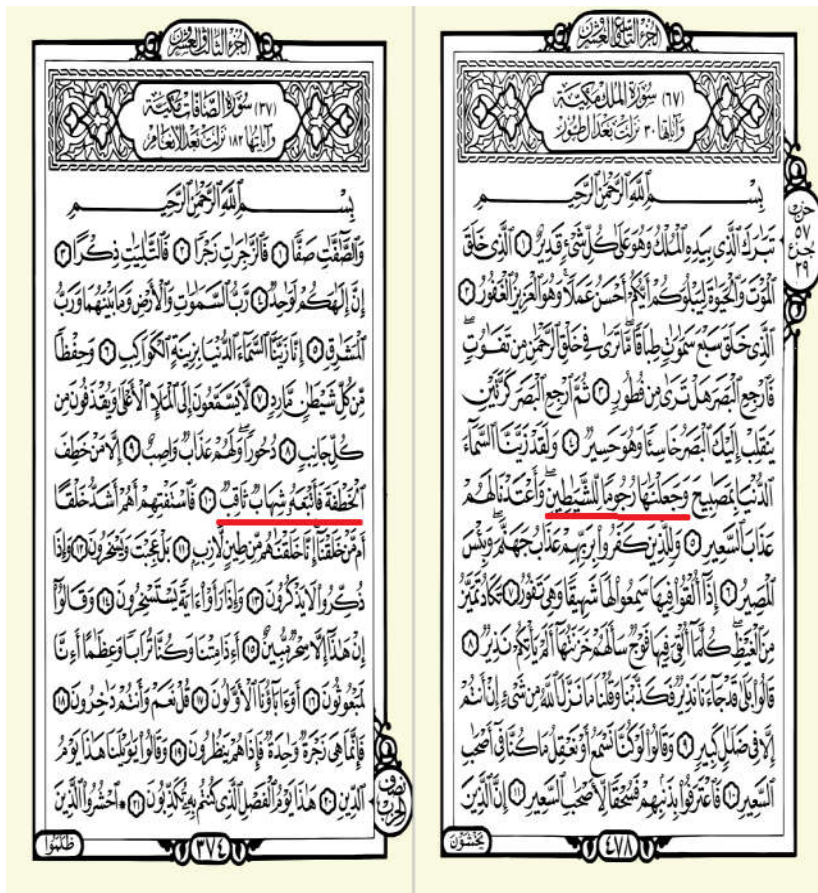 الجزء التاسع والعشرون
(٦٧) سورة الملك مكية
وآياتها ٣٠ نزلت بعد الطور
بِسْمِ ٱللَّهِ ٱلرَّحْمَٰنِ ٱلرَّحِيمِ
تَبَٰرَكَ ٱلَّذِى بِيَدِهِ ٱلْمُلْكُ وَهُوَ عَلَىٰ كُلِّ شَىْءٍ قَدِيرٌ ١ ٱلَّذِى خَلَقَ
ٱلْمَوْتَ وَٱلْحَيَوٰةَ لِيَبْلُوَكُمْ أَيُّكُمْ أَحْسَنُ عَمَلًا وَهُوَ ٱلْعَزِيزُ ٱلْغَفُورُ ٢
ٱلَّذِى خَلَقَ سَبْعَ سَمَٰوَٰتٍ طِبَاقًا مَّا تَرَىٰ فِى خَلْقِ ٱلرَّحْمَٰنِ مِن تَفَٰوُتٍ
فَٱرْجِعِ ٱلْبَصَرَ هَلْ تَرَىٰ مِن فُطُورٍ ٣ ثُمَّ ٱرْجِعِ ٱلْبَصَرَ كَرَّتَيْنِ
يَنقَلِبْ إِلَيْكَ ٱلْبَصَرُ خَاسِئًا وَهُوَ حَسِيرٌ ٤ وَلَقَدْ زَيَّنَّا ٱلسَّمَآءَ
ٱلدُّنْيَا بِمَصَٰبِيحَ وَجَعَلْنَٰهَا رُجُومًا لِّلشَّيَٰطِينِ وَأَعْتَدْنَا لَهُمْ
عَذَابَ ٱلسَّعِيرِ ٥ وَلِلَّذِينَ كَفَرُوا۟ بِرَبِّهِمْ عَذَابُ جَهَنَّمَ وَبِئْسَ
ٱلْمَصِيرُ ٦ إِذَآ أُلْقُوا۟ فِيهَا سَمِعُوا۟ لَهَا شَهِيقًا وَهِىَ تَفُورُ ٧ تَكَادُ تَمَيَّزُ
مِنَ ٱلْغَيْظِ كُلَّمَآ أُلْقِىَ فِيهَا فَوْجٌ سَأَلَهُمْ خَزَنَتُهَآ أَلَمْ يَأْتِكُمْ نَذِيرٌ ٨
قَالُوا۟ بَلَىٰ قَدْ جَآءَنَا نَذِيرٌ فَكَذَّبْنَا وَقُلْنَا مَا نَزَّلَ ٱللَّهُ مِن شَىْءٍ إِنْ أَنتُمْ
إِلَّا فِى ضَلَٰلٍ كَبِيرٍ ٩ وَقَالُوا۟ لَوْ كُنَّا نَسْمَعُ أَوْ نَعْقِلُ مَا كُنَّا فِىٓ أَصْحَٰبِ
ٱلسَّعِيرِ ١٠ فَٱعْتَرَفُوا۟ بِذَنۢبِهِمْ فَسُحْقًا لِّأَصْحَٰبِ ٱلسَّعِيرِ ١١ إِنَّ ٱلَّذِينَ
حزب
٥٧
جزء
٢٩
٤٧٨
يَخْشَوْنَ
الجزء الثالث والعشرون
(٣٧) سورة الصافات مكية
وآياتها ١٨٢ نزلت بعد الأنعام
بِسْمِ ٱللَّهِ ٱلرَّحْمَٰنِ ٱلرَّحِيمِ
وَٱلصَّٰٓفَّٰتِ صَفًّا ١ فَٱلزَّٰجِرَٰتِ زَجْرًا ٢ فَٱلتَّٰلِيَٰتِ ذِكْرًا ٣
إِنَّ إِلَٰهَكُمْ لَوَٰحِدٌ ٤ رَّبُّ ٱلسَّمَٰوَٰتِ وَٱلْأَرْضِ وَمَا بَيْنَهُمَا وَرَبُّ
ٱلْمَشَٰرِقِ ٥ إِنَّا زَيَّنَّا ٱلسَّمَآءَ ٱلدُّنْيَا بِزِينَةٍ ٱلْكَوَاكِبِ ٦ وَحِفْظًا
مِّن كُلِّ شَيْطَٰنٍ مَّارِدٍ ٧ لَّا يَسَّمَّعُونَ إِلَى ٱلْمَلَإِ ٱلْأَعْلَىٰ وَيُقْذَفُونَ مِن
كُلِّ جَانِبٍ ٨ دُحُورًا وَلَهُمْ عَذَابٌ وَاصِبٌ ٩ إِلَّا مَنْ خَطِفَ
ٱلْخَطْفَةَ فَأَتْبَعَهُۥ شِهَابٌ ثَاقِبٌ ١٠ فَٱسْتَفْتِهِمْ أَهُمْ أَشَدُّ خَلْقًا
أَم مَّنْ خَلَقْنَآ إِنَّا خَلَقْنَٰهُم مِّن طِينٍ لَّازِبٍۭ ١١ بَلْ عَجِبْتَ وَيَسْخَرُونَ ١٢ وَإِذَا
ذُكِّرُوا۟ لَا يَذْكُرُونَ ١٣ وَإِذَا رَأَوْا۟ ءَايَةً يَسْتَسْخِرُونَ ١٤ وَقَالُوٓا۟
إِنْ هَٰذَآ إِلَّا سِحْرٌ مُّبِينٌ ١٥ أَءِذَا مِتْنَا وَكُنَّا تُرَابًا وَعِظَٰمًا أَءِنَّا
لَمَبْعُوثُونَ ١٦ أَوَءَابَآؤُنَا ٱلْأَوَّلُونَ ١٧ قُلْ نَعَمْ وَأَنتُمْ دَٰخِرُونَ ١٨
فَإِنَّمَا هِىَ زَجْرَةٌ وَٰحِدَةٌ فَإِذَا هُمْ يَنظُرُونَ ١٩ وَقَالُوا۟ يَٰوَيْلَنَا هَٰذَا يَوْمُ
ٱلدِّينِ ٢٠ هَٰذَا يَوْمُ ٱلْفَصْلِ ٱلَّذِى كُنتُم بِهِۦ تُكَذِّبُونَ ٢١ ۞ ٱحْشُرُوا۟ ٱلَّذِينَ
نصف
الحزب
٣٧٤
ظَلَمُوا۟